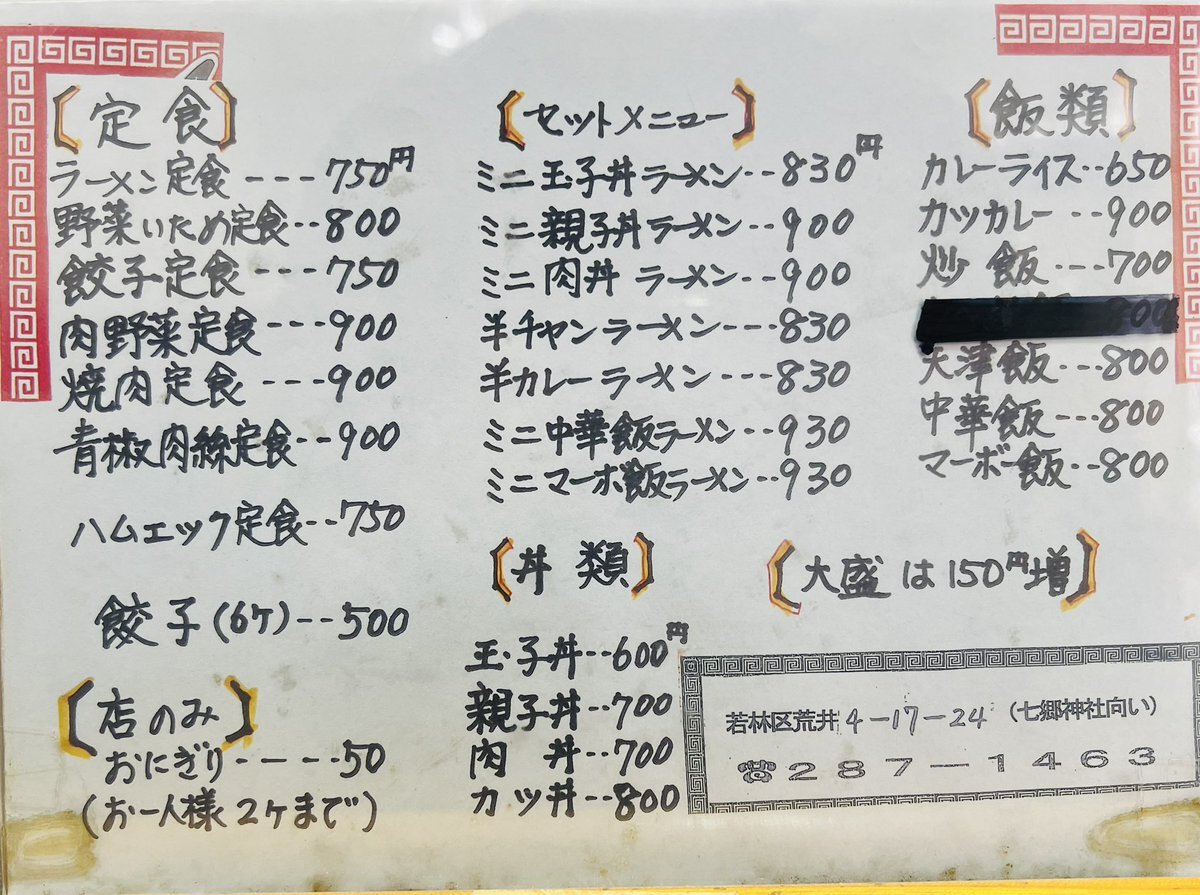 【定食】
ラーメン定食---750円
野菜いため定食--800
餃子定食---750
肉野菜定食---900
焼肉定食---900
青椒肉絲定食--900
ハムエック定食--750
餃子(6ケ)--500
【店のみ】
おにぎり-----50
(お一人様2ケまで)
【セットメニュー】
ミニ玉子丼ラーメン--830円
ミニ親子丼ラーメン--900
ミニ肉丼 ラーメン--900
半チャンラーメン---830
半カレーラーメン---830
ミニ中華飯ラーメン--930
ミニマーボ飯ラーメン--930
【丼類】
玉子丼--600円
親子丼--700
肉 丼--700
カツ丼--800
【飯類】
カレーライス--650
カツカレー--900
炒飯---700
天津飯--800
中華飯---800
マーボー飯--800
【大盛は150円増】
若林区荒井4-17-24 (七郷神社向い)
☎287-1463